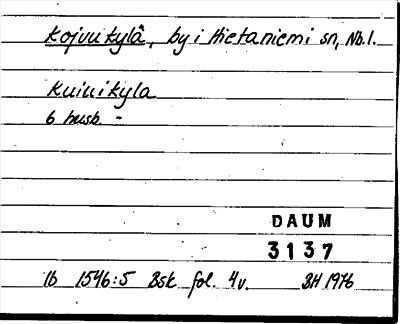 Kojvukylä, by i Hietaniemi sn, Nb.l.
Kuiuikyla
6 husb. -
DAUM
3137
lb 1546:5 Bsk fol. 4v. BH 1976